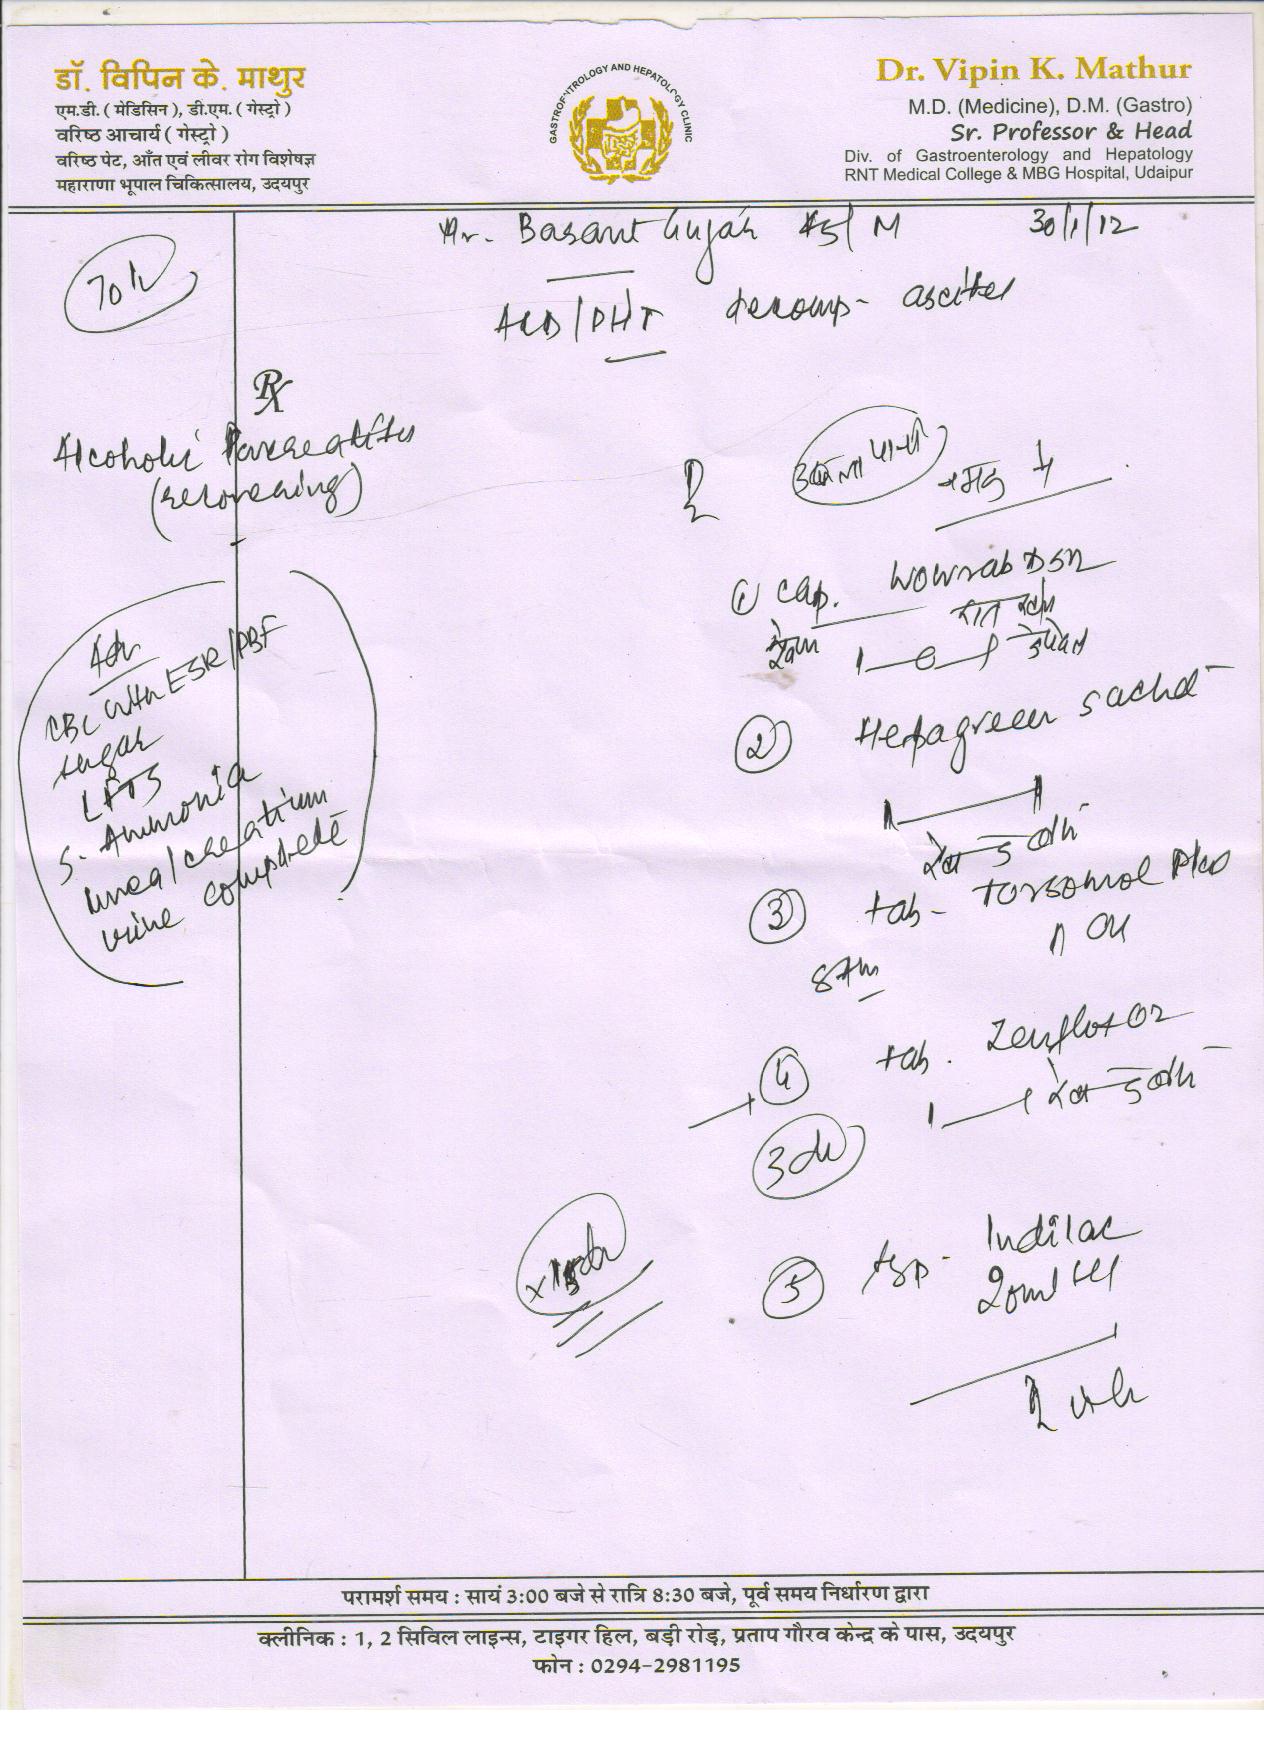 डॉ. विपिन के. माथुर
एम.डी. ( मेडिसिन ), डी.एम. ( गेस्ट्रो )
वरिष्ठ आचार्य ( गेस्ट्रो )
वरिष्ठ पेट, आँत एवं लीवर रोग विशेषज्ञ
महाराणा भूपाल चिकित्सालय, उदयपुर
GASTROENTROLOGY AND HEPATOLOGY CLINIC
Dr. Vipin K. Mathur
M.D. (Medicine), D.M. (Gastro)
Sr. Professor & Head
Div. of Gastroenterology and Hepatology
RNT Medical College & MBG Hospital, Udaipur
Mr. Basant Gujar 45/M 30/1/12
ALD/PHT decomp- ascites
Rx
Alcoholic Pancreatitis
(recovering)
Adv
CBC with ESR/PBF
sugar
LFTS
S. Ammonia
urea/creatinin
urine complete
उबला पानी नमक
① Cap. Wowrab DSR
1—0—1
② Hepagreen sachet
③ tab- Torsomol Plus
1 OD
8 AM
④ tab. Zenflox OZ
⑤ syp- Indilac
20ml HS
परामर्श समय : सायं 3:00 बजे से रात्रि 8:30 बजे, पूर्व समय निर्धारण द्वारा
क्लीनिक : 1, 2 सिविल लाइन्स, टाइगर हिल, बड़ी रोड़, प्रताप गौरव केन्द्र के पास, उदयपुर
फोन : 0294-2981195